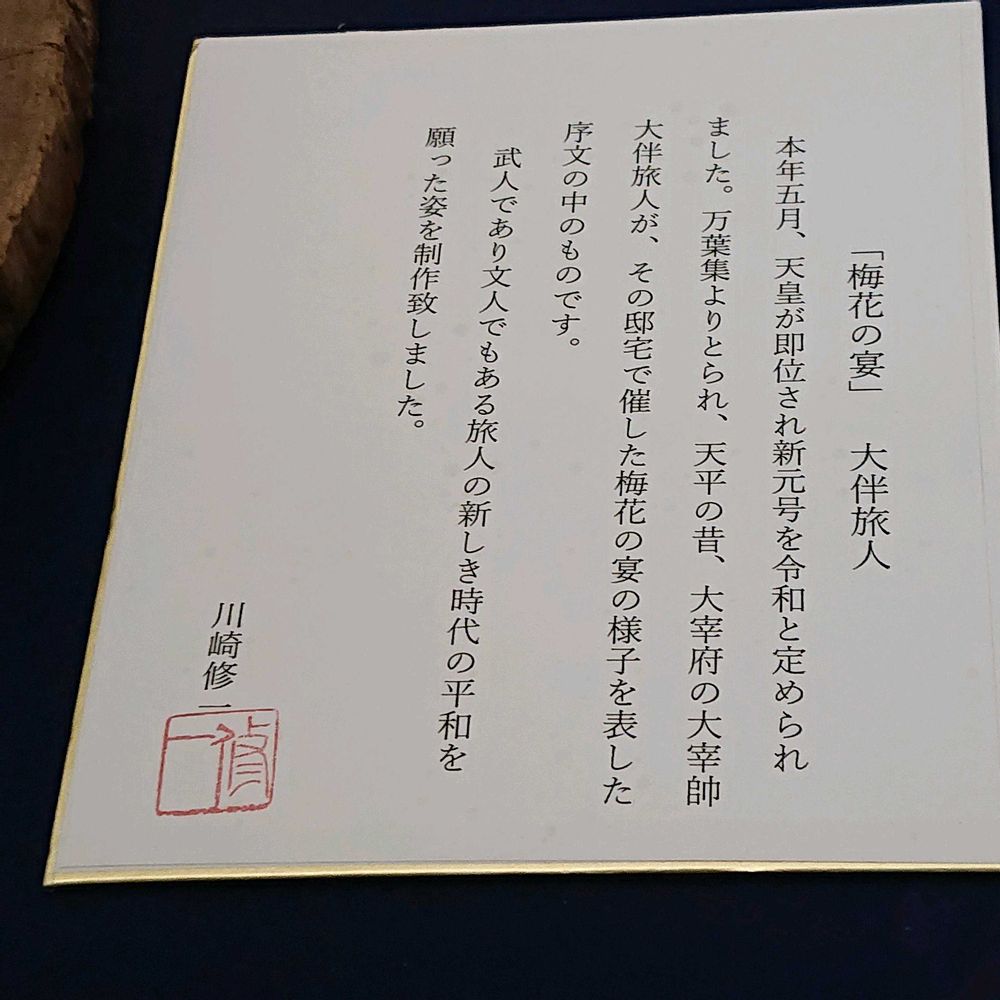 「梅花の宴」　大伴旅人
本年五月、天皇が即位され新元号を令和と定められ
ました。万葉集よりとられ、天平の昔、大宰府の大宰帥
大伴旅人が、その邸宅で催した梅花の宴の様子を表した
序文の中のものです。
武人であり文人でもある旅人の新しき時代の平和を
願った姿を制作致しました。
川崎修一
修一